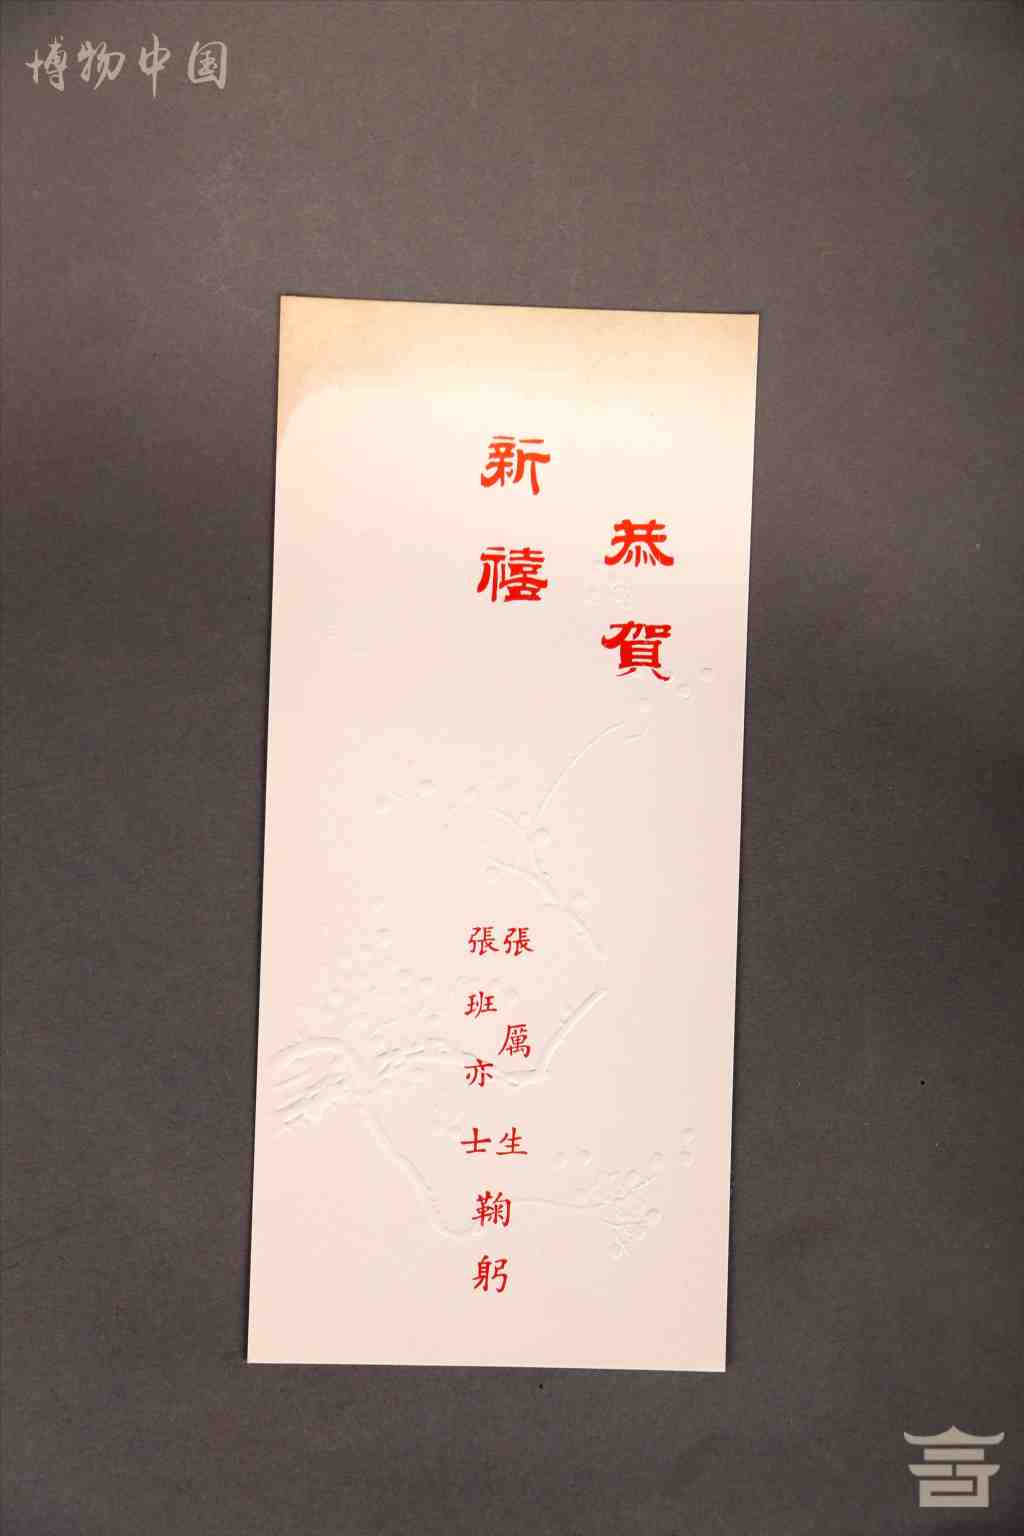 博物中国
恭賀
新禧
張厲生
張班亦士
鞠躬